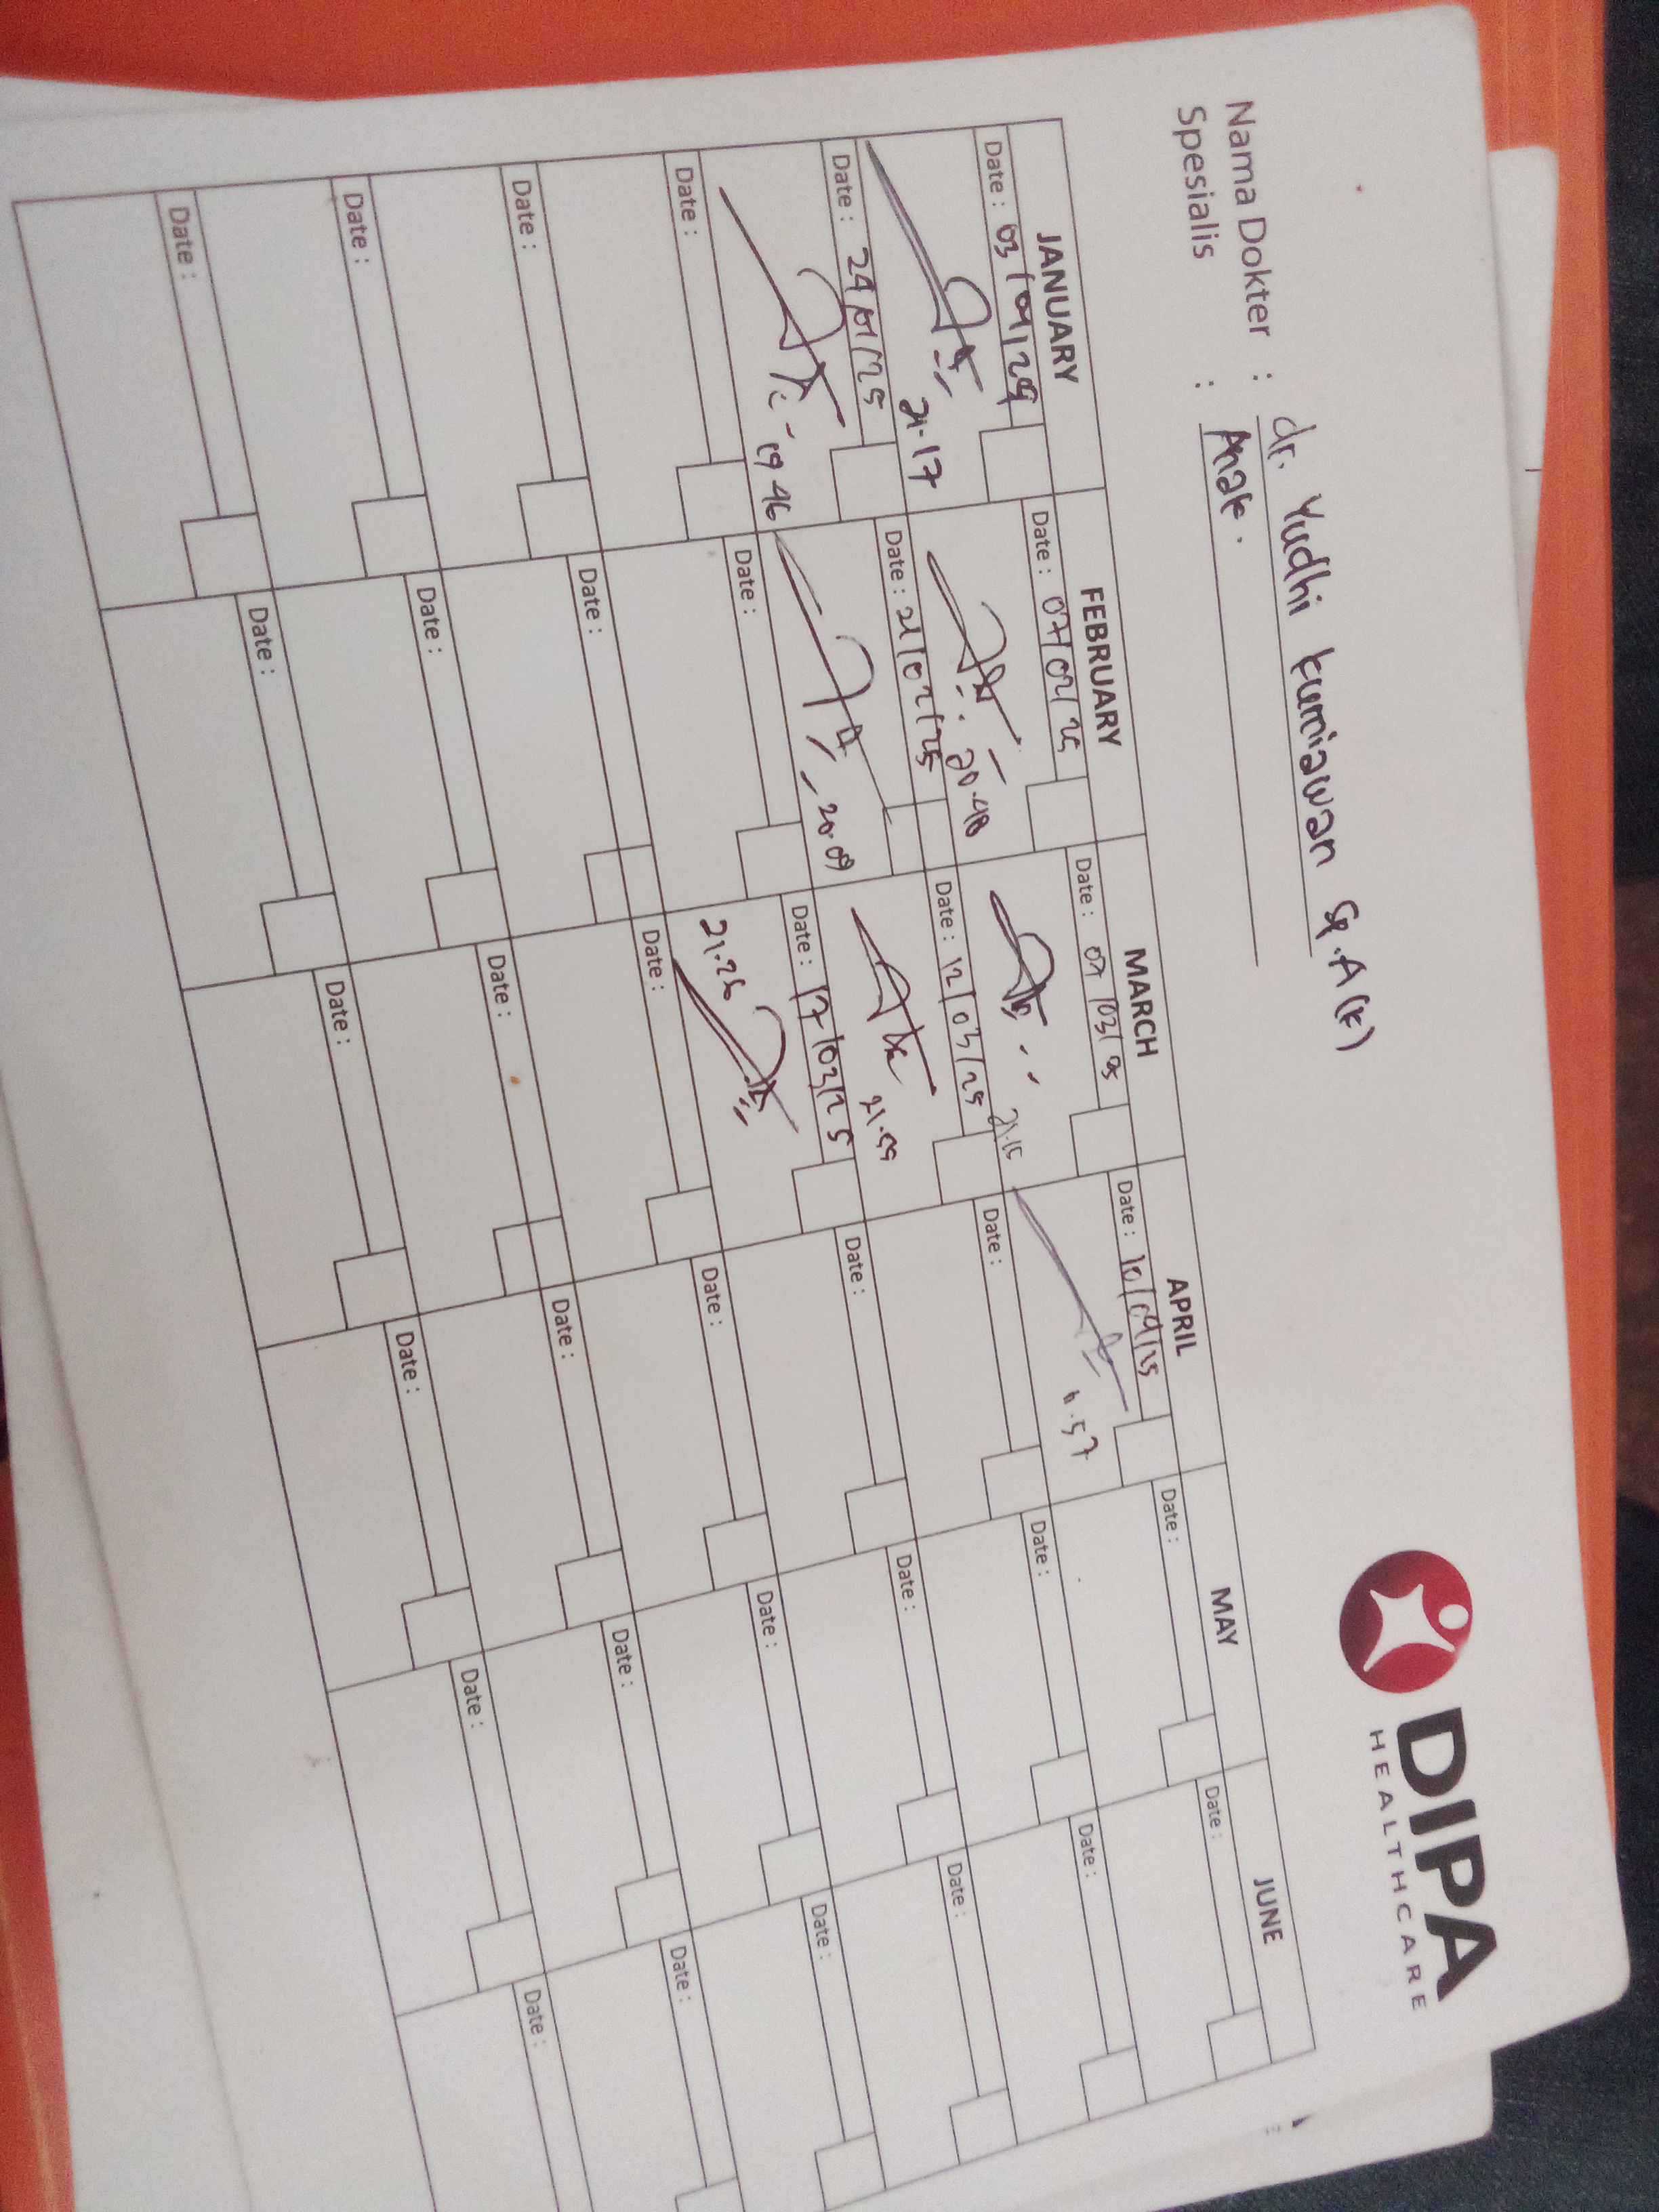 DIPA
HEALTHCARE
Nama Dokter : dr. Yudhi Kurniawan Sp.A(K)
Spesialis : Anak.
JANUARY FEBRUARY MARCH APRIL MAY JUNE
Date : 03/01/25 Date : 07/02/25 Date : 07/03/25 Date : 10/04/25 Date : Date :
21.17 20.48 21.15 11.57
Date : 24/01/25 Date : 21/02/25 Date : 12/03/25 Date : Date : Date :
19.46 20.09 21.59
Date : Date : Date : 17/03/25 Date : Date : Date :
21.25
Date : Date : Date : Date : Date : Date :
Date : Date : Date : Date : Date : Date :
Date : Date : Date : Date : Date : Date :